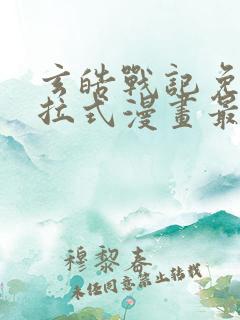 玄皓戰記免
拉式漫畫最
穆黎春
未經同意禁止轉載